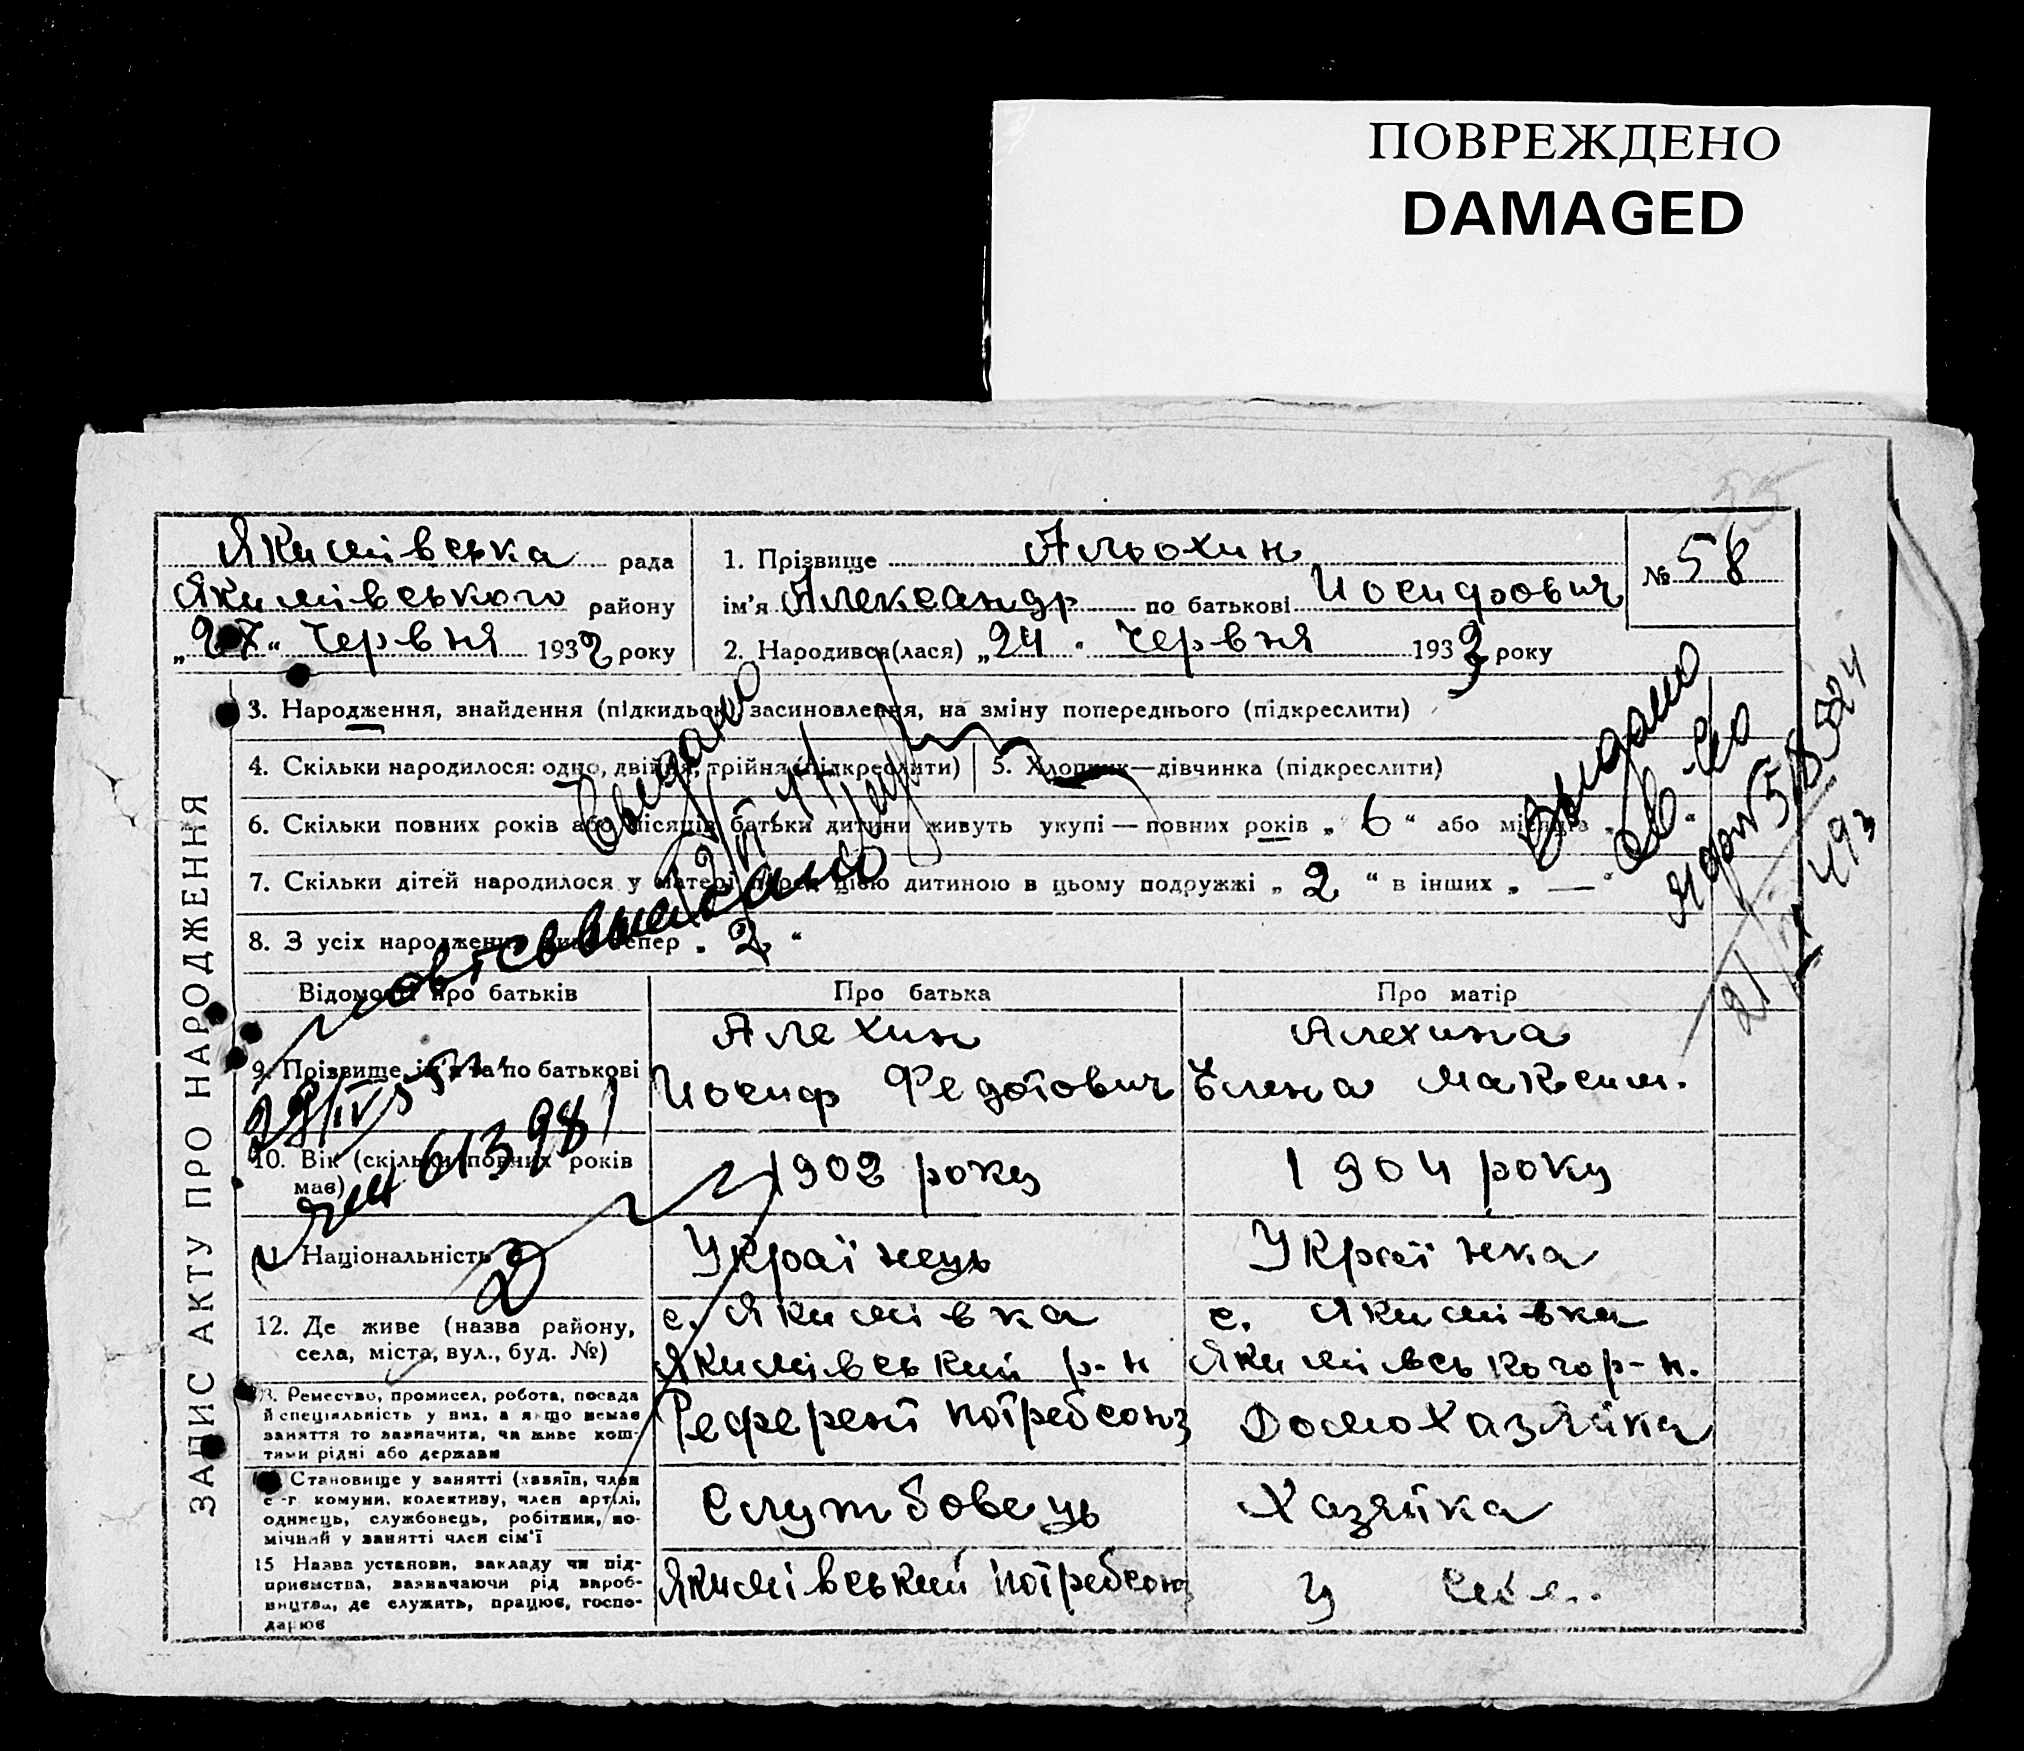 ПОВРЕЖДЕНО
DAMAGED
35
Якимівська рада
Якимівського району
„27“ Червня 1932 року
1. Прізвище Альохин
ім'я Александр по батькові Иосифович
2. Народився(лася) „24“ Червня 1932 року
№ 58
ЗАПИС АКТУ ПРО НАРОДЖЕННЯ
3. Народження, знайдення (підкидьок) засиновлення, на зміну попереднього (підкреслити)
4. Скільки народилося: одно, двійня, трійня (підкреслити) 5. Хлопчик—дівчинка (підкреслити)
6. Скільки повних років або місяців батьки дитини живуть укупі—повних років „6“ або місяців „ “
7. Скільки дітей народилося у матері перед цією дитиною в цьому подружжі „2“ в інших „—“
8. З усіх народжених живе тепер „2“
Відомості про батьків Про батька Про матір
9. Прізвище, ім'я та по батькові
Алехин
Иосиф Федотович
Алехина
Елена Максим.
10. Вік (скільки повних років має)
1902 року
1904 року
11. Національність
Українець
Українка
12. Де живе (назва району, села, міста, вул., буд. №)
с. Якимівка
Якимівський р-н
с. Якимівка
Якимівського р-н.
13. Ремество, промисел, робота, посада
й спеціяльність у них, а якщо немає
заняття то зазначити, чи живе кош-
тами рідні або держави
Референт потребсоюз
Домохазяйка
Становище у занятті (хазяїн, член
с-г комуни, колективу, член артілі,
одинець, службовець, робітник, по-
мічний у занятті член сім'ї
Службовець
Хазяйка
15 Назва установи, закладу чи під-
приємства, зазначаючи рід вироб-
ництва, де служить, працює, госпо-
дарює
Якимівський потребсоюз
У
Выдано
613981